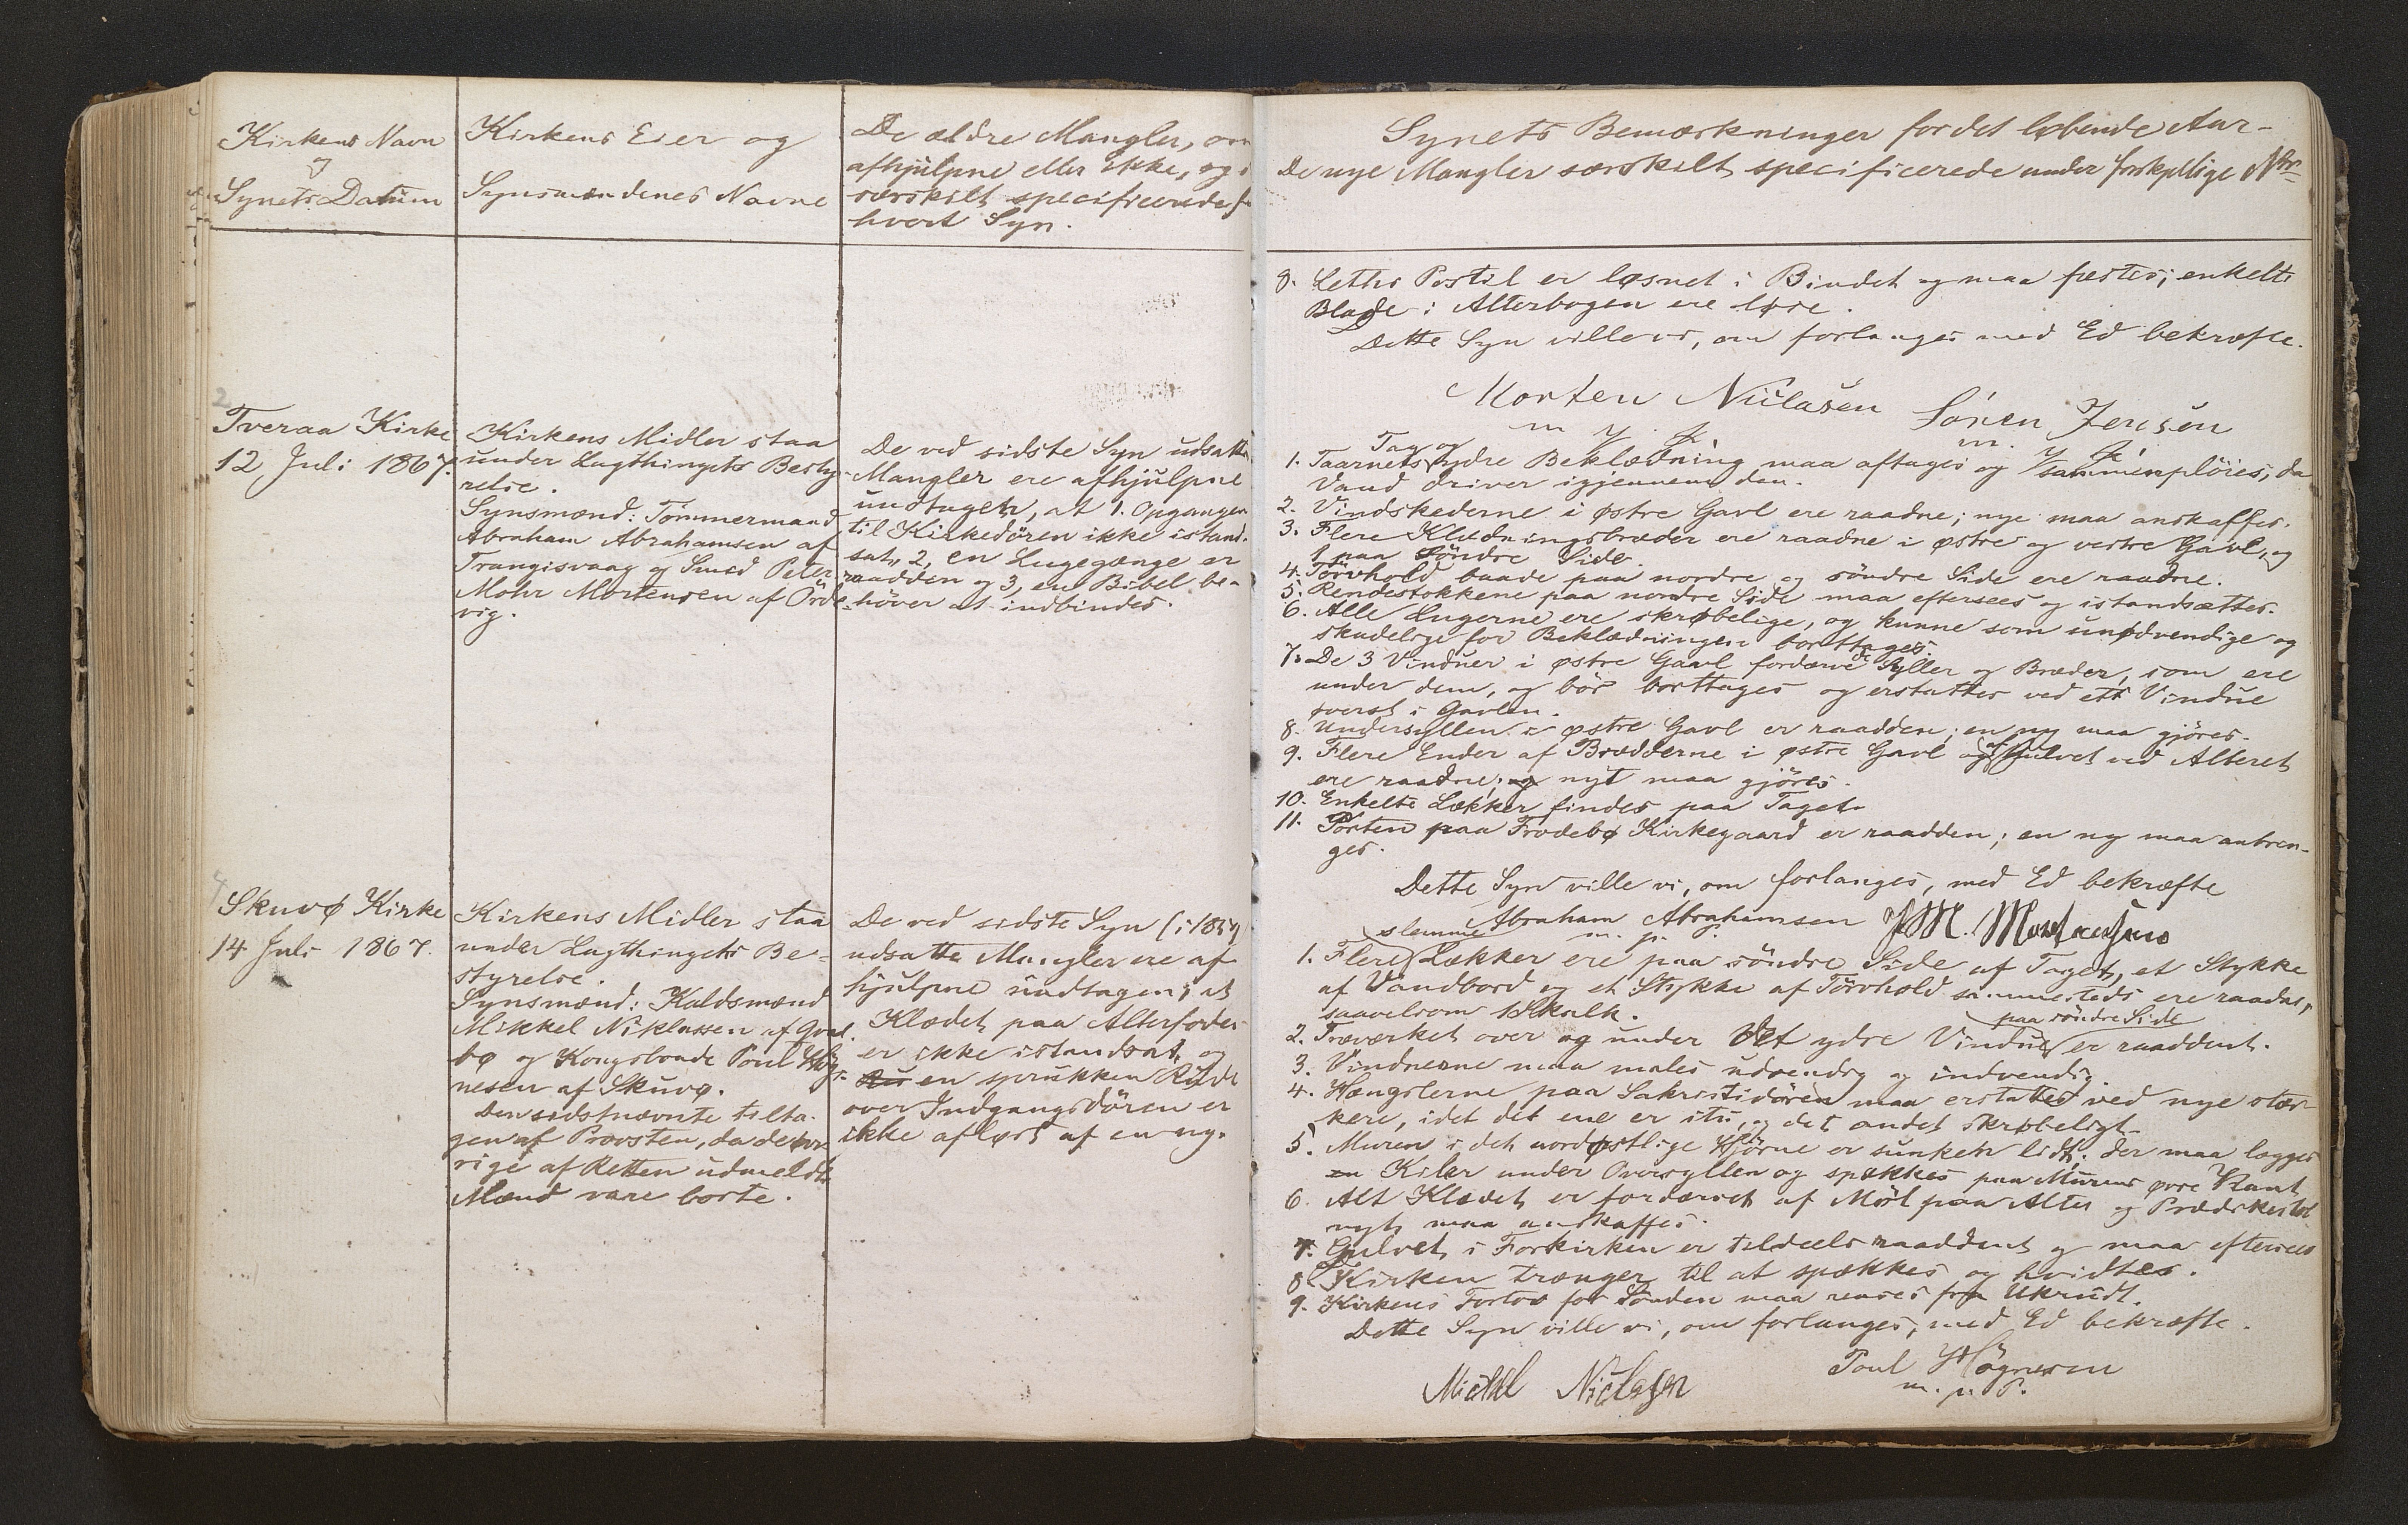 Kirkens Navn
og
Synets Datum
Kirkens Eier og
Synsmændenes Navne
De ældre Mangler, om
afhjulpne eller ikke, og
særskilt specificerede f
hvert Syn.
Tveraa Kirke
12 Juli 1867.
Kirkens Midler staa
under Lagthingets Besty-
relse.
Synsmænd: Tömmermand
Abraham Abrahamsen af
Trangisvaag og Smed Peter
Mohr Mortensen af Örde-
vig.
De ved sidste Syn udsatte
Mangler ere afhjulpne
undtagen, at 1. Opgangen
til Kirkedören ikke istand-
sat, 2, en Lugegænge er
raadden og 3, en Bibel be-
höver at indbindes.
Skuvø Kirke
14 Juli 1867.
Kirkens Midler staa
under Lagthingets Be-
styrelse.
Synsmænd: Kaldsmand
Mikkel Niklassen af Qval-
bø og Kongsbonde Poul Hög-
nesen af Skuvø.
Den sidstnævnte tilta-
gen af Provsten, da de
rige af Retten udmeldte
Mænd vare borte.
De ved sidste Syn (i 1857)
udsatte Mangler ere af-
hjulpne undtagen; at
Klædet paa Alterfoden
er ikke istandsat, og
en sprukken Rude
over Indgangsdören er
ikke aflöst af en ny.
Synets Bemærkninger for det løbende Aar-
De nye Mangler særskilt specificerede under forskjellige Nr
8. Leths Postil er løsnet i Bindet og maa fæstes; enkelte
Blade i Alterbogen ere løse.
Dette Syn ville vi, om forlanges med Ed bekræfte.
Morten Niclasen Sönen Jensen
m. p. p. m. p. p.
Tag og
1. Taarnets ydre Beklædning maa aftages og sammenplöies, da
Vand driver igjennem den.
2. Vindskederne i østre Gavl ere raadne; nye maa anskaffes.
3. Flere Klædningsbræder ere raadne i østre og vestre Gavl, og
1 paa söndre Side.
4. Törvhold baade paa nordre og söndre Side ere raadne.
5. Rendestokkene paa nordre Side maa eftersees og istandsættes.
6. Alle Lugerne ere skrøbelige, og kunne som unødvendige og
skadelige for Beklædningen borttages.
7. De 3 Vinduer i østre Gavl fordærve de Syller og Bræder, som ere
under dem, og bör borttages og erstattes ved et Vindue
øverst i Gavlen.
8. Undersyllen i østre Gavl er raadden; en ny maa gjöres.
9. Flere Ender af Brædderne i østre Gavl og af Gulvet ved Alteret
ere raadne; nyt maa gjöres.
10. Enkelte Lækker findes paa Taget.
11. Porten paa Frodebø Kirkegaard er raadden; en ny maa anbrin-
ges.
Dette Syn ville vi, om forlanges, med Ed bekræfte
Abraham Abrahamsen P M. Mortensen
m. p. p.
slemme
1. Flere Lækker ere paa söndre Side af Taget, et Stykke
af Vandbord og et Stykke af Törvhold sammesteds ere raadne,
saavelsom 1 Skalk.
paa söndre Side
2. Træværket over og under det ydre Vindue er raaddent.
3. Vinduerne maa males udvendig og indvendig.
4. Hængslerne paa Sakristidören maa erstattes ved nye stær-
kere, idet det ene er itu, og det andet skrøbeligt.
5. Muren i det nordøstlige Hjörne er sunken lidt; der maa lægges
en Kiler under Oversyllen og spækkes paa Murens øvre Kant.
6. Alt Klædet er fordærvet af Möl paa Alter og Prædikestol
nyt maa anskaffes.
7. Gulvet i Forkirken er tildeels raaddent og maa eftersees
8. Kirken trænger til at spækkes og hvidtes.
9. Kirkens Fortov for Sönden maa renses fra Ukrudt.
Dette Syn ville vi, om forlanges, med Ed bekræfte.
Mickel Niclasen Poul Högnesen
m. p. P.